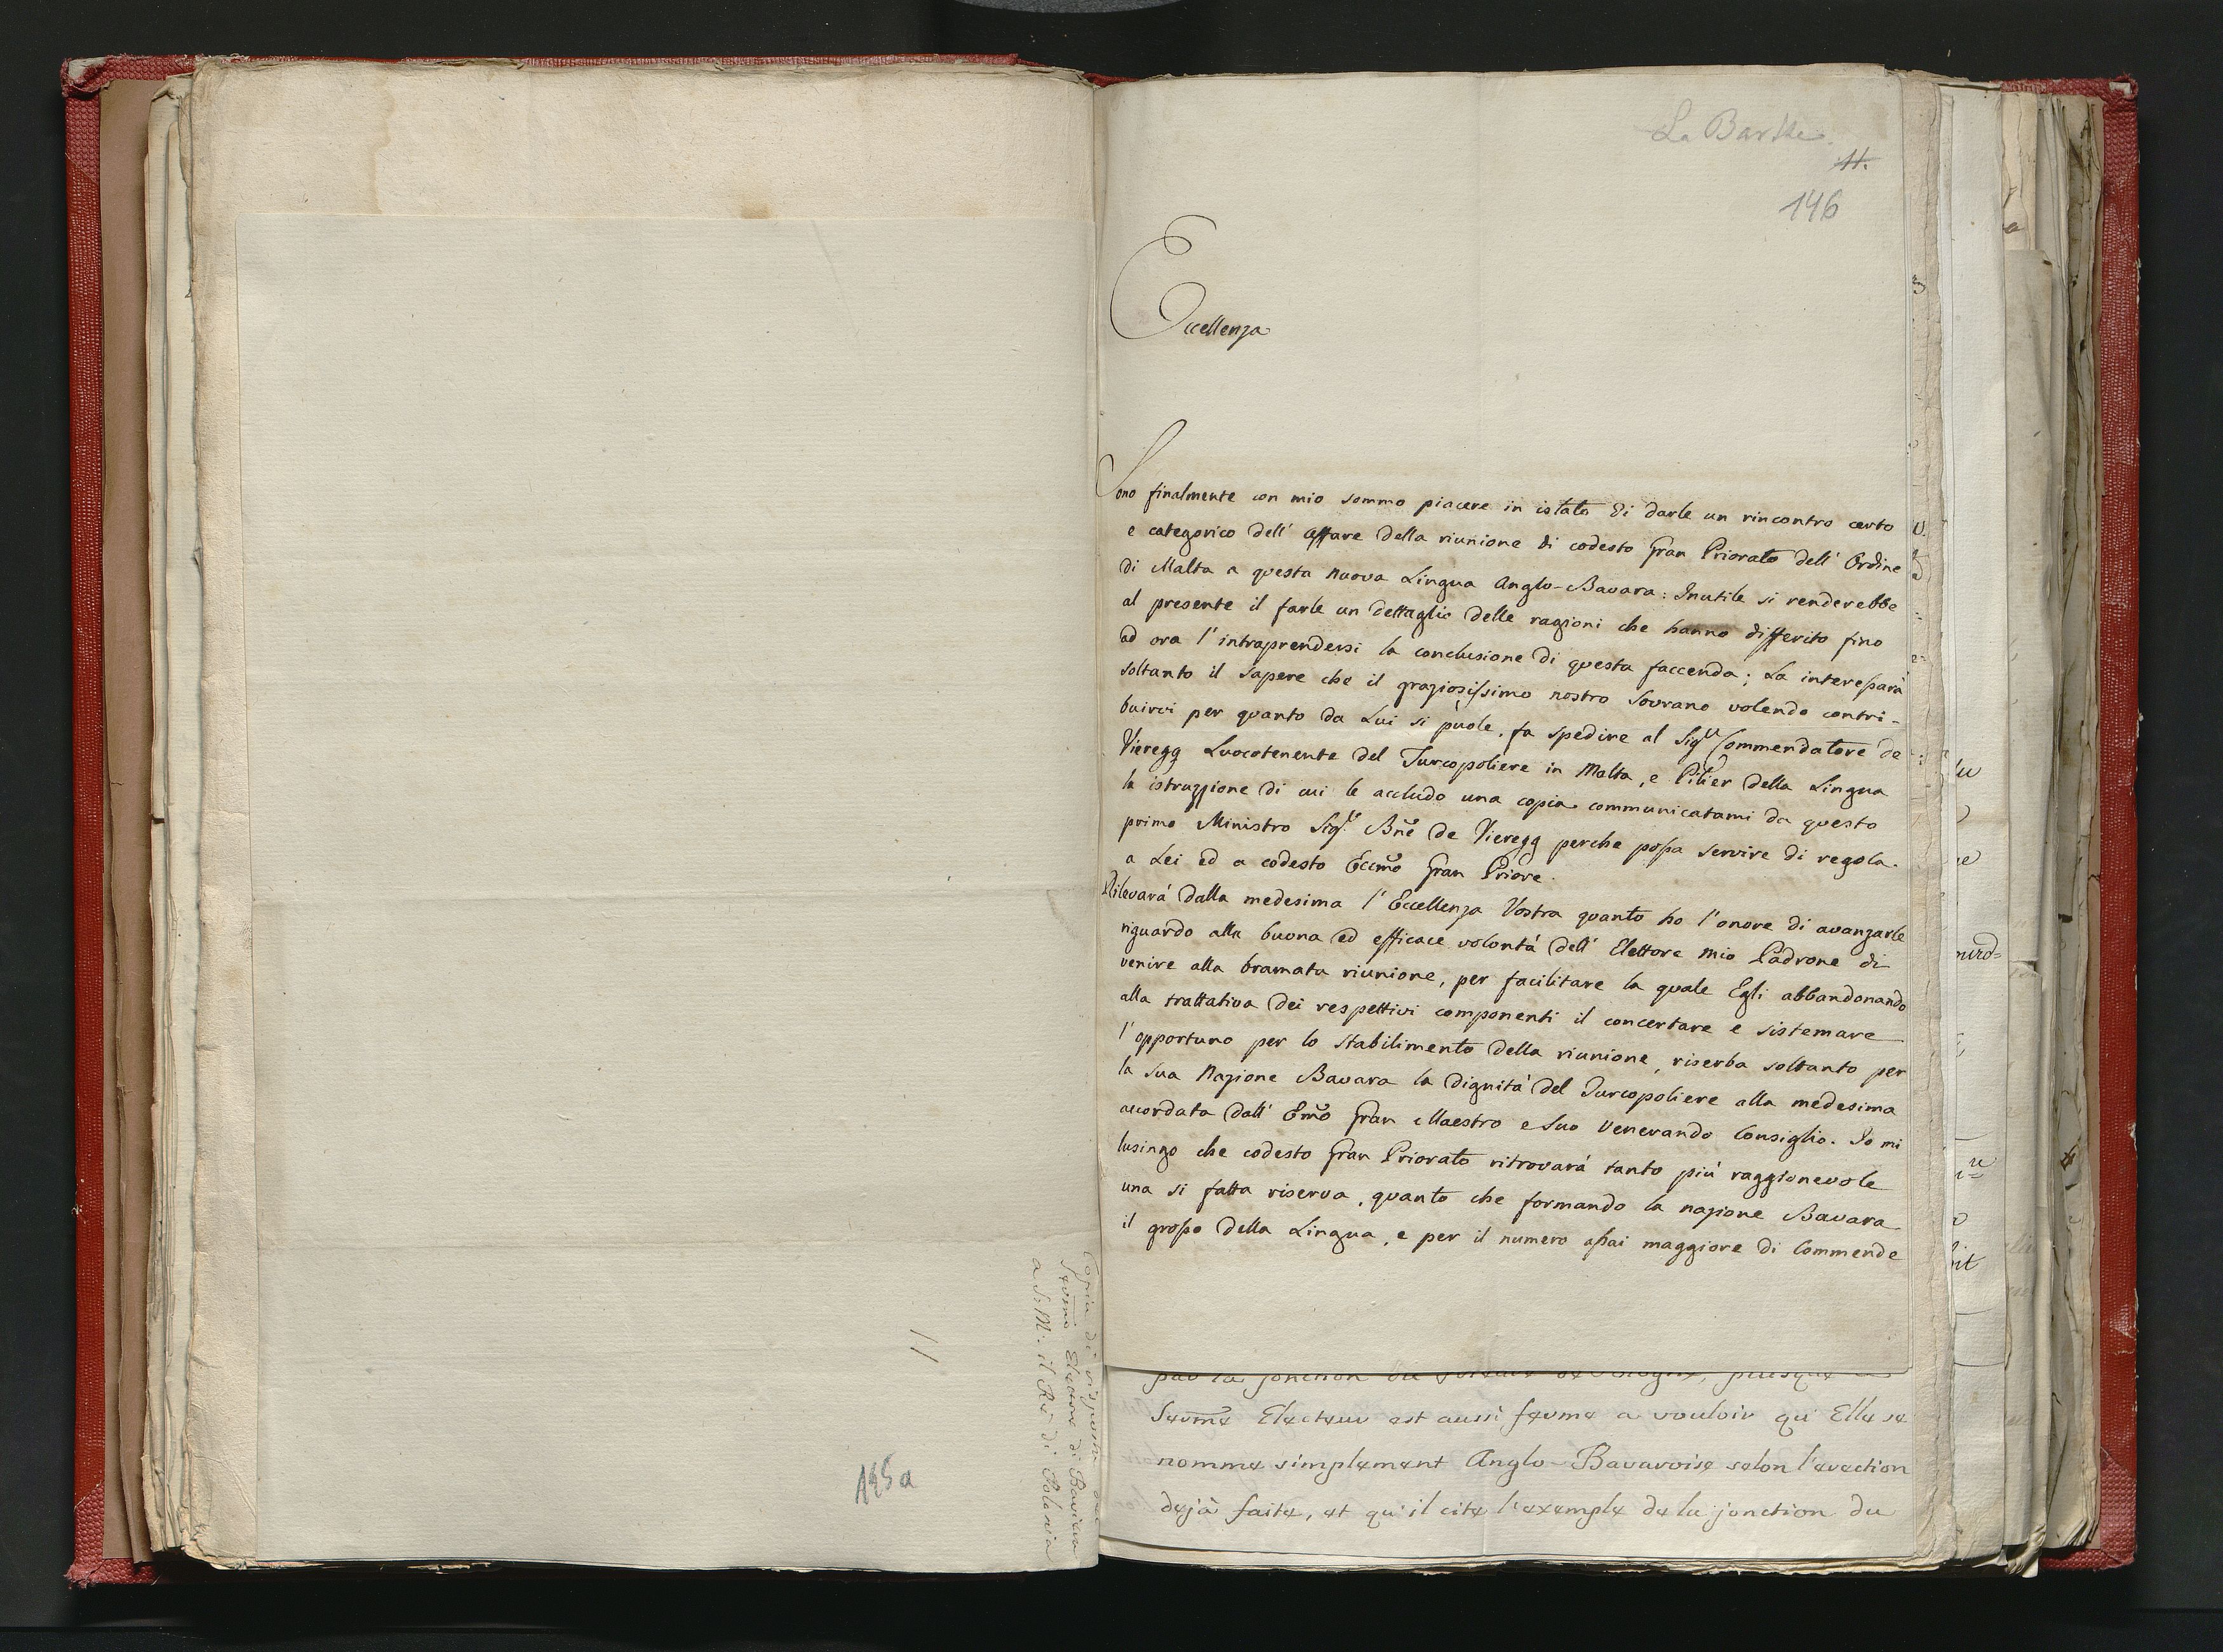 Copia di risposta del
Sermõ Elettore di Baviera
a S: M: il Re di Polonia
11
195a
La Barthe.
11.
146
Eccellenza
Sono finalmente con mio sommo piacere in istato di darle un rincontro certo
e categorico dell' affare della riunione di codesto Gran Priorato dell' Ordine
di Malta a questa nuova Lingua Anglo-Bavara: Inutile si renderebbe
al presente il farle un dettaglio delle ragioni che hanno differito fino
ad ora l'intraprendersi la conclusione di questa faccenda; La interessarà
soltanto il sapere che il graziosissimo nostro Sovrano volendo contri-
buirvi per quanto da Lui si pùole, fa spedire al Sigr Commendatore de
Vieregg Luocotenente del Turcopoliere in Malta, e Pilier della Lingua
la istruzzione di cui le accludo una copia communicatami da questo
primo Ministro Sigr Bne de Vieregg perche possa servire di regola
a Lei ed a codesto Eccmõ Gran Priore.
Rilevarà dalla medesima l'Eccellenza Vostra quanto ho l'onore di avanzarle
riguardo alla buona ed efficace volontà dell' Elettore mio Padrone di
venire alla bramata riunione, per facilitare la quale Egli abbandonando
alla trattativa dei respettivi componenti il concertare e sistemare
l'opportuno per lo stabilimento della riunione, riserba soltanto per
la sua Nazione Bavara la dignità del Turcopoliere alla medesima
accordata dall' Emõ Gran Maestro e Suo Venerando Consiglio. Io mi
lusingo che codesto Gran Priorato ritrovarà tanto più raggionevole
una si fatta riserva, quanto che formando la nazione Bavara
il grosso della Lingua, e per il numero assai maggiore di Commende
par la jonction du
Serme Electeur est aussi ferme a vouloir qu' Elle se
nomme simplement Anglo-Bavaroise selon l'erection
deja faite, et qu'il cite l'exemple de la jonction du